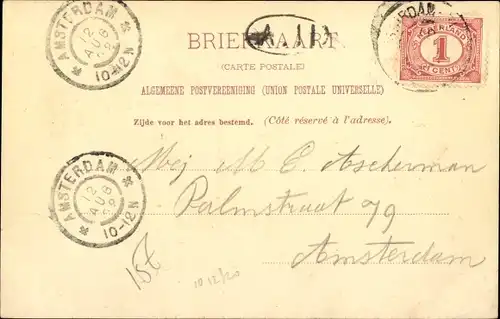 BRIEFKAART.
(CARTE POSTALE)
ALGEMEENE POSTVEREENIGING (UNION POSTALE UNIVERSELLE)
Zijde voor het adres bestemd. (Côté réservé à l'adresse).
NEDERLAND
1
CENT
AMSTERDAM
12 AUG
10-12N
AMSTERDAM
12 AUG
10-12N
Mej M E. Ascherman
Palmstraat 79
Amsterdam
10 12/20